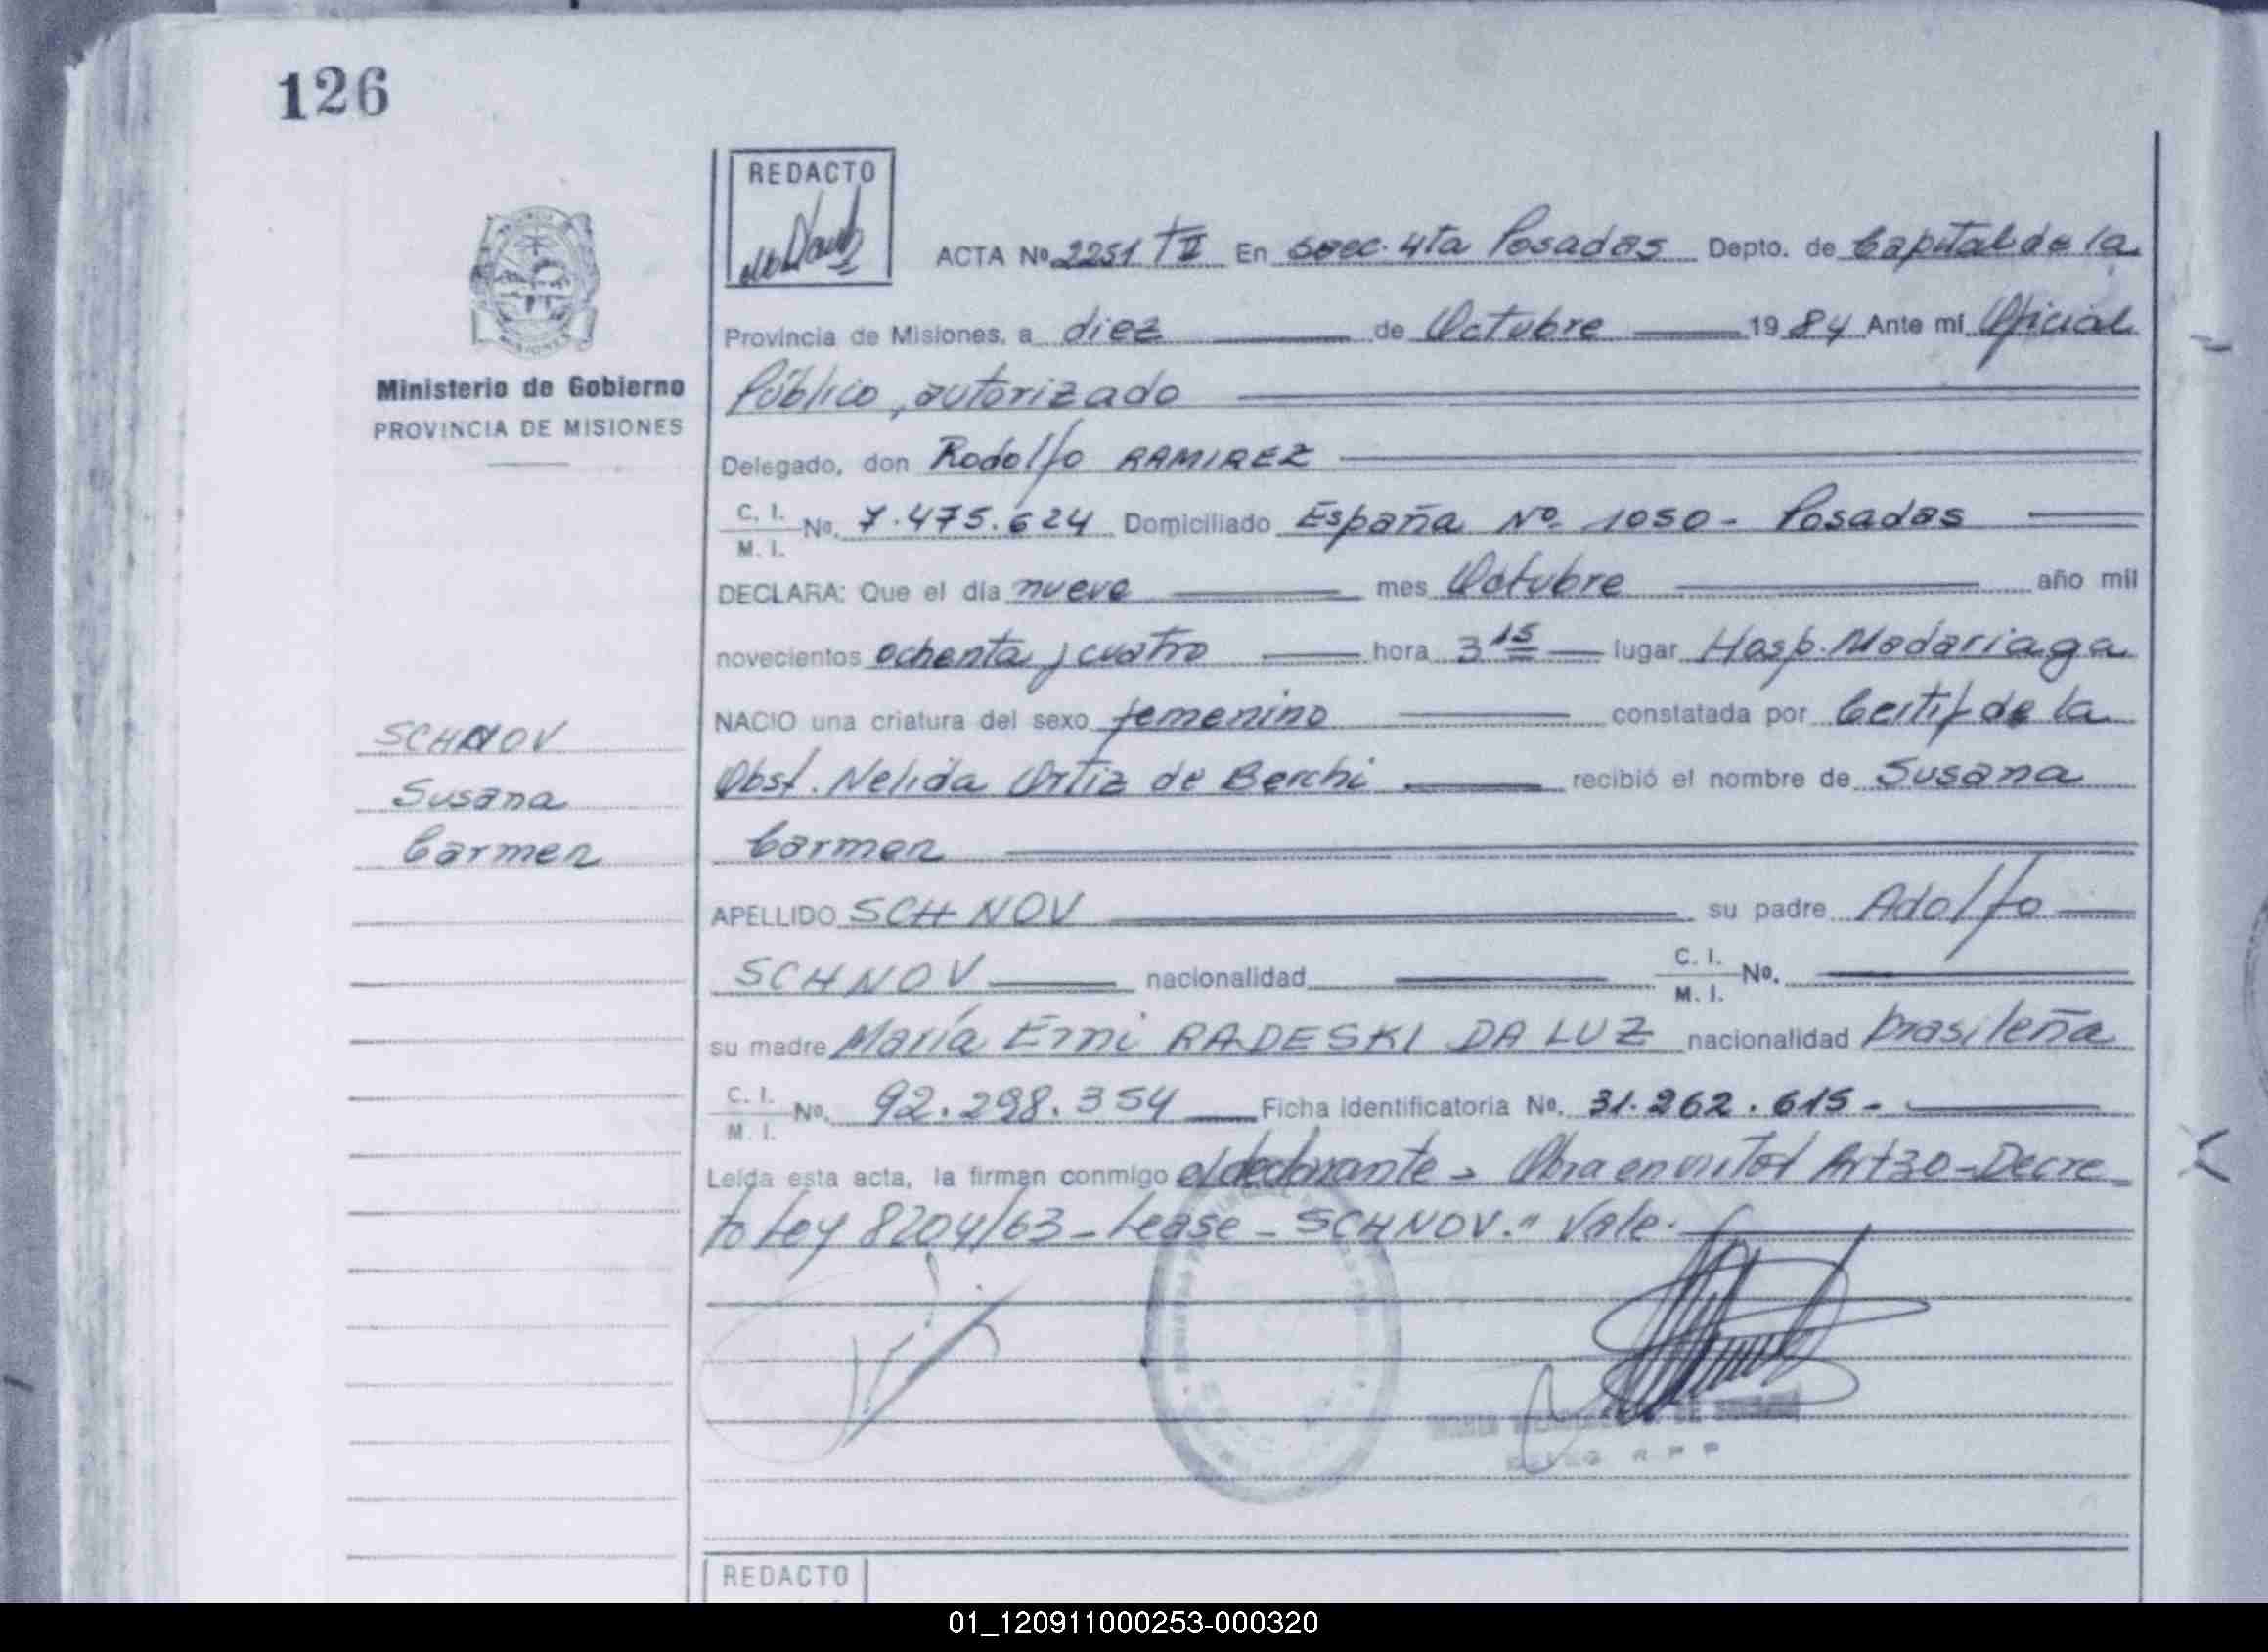 126
REDACTO
ACTA Nº 2251 TII En Secc. 4ta Posadas Depto. de Capital de la
Provincia de Misiones, a diez de Octubre 1984 Ante mí Oficial
Público, autorizado
Ministerio de Gobierno
PROVINCIA DE MISIONES
Delegado, don Rodolfo RAMIREZ
C. I.
M. I.
No. 7.475.624 Domiciliado España Nº 1050 - Posadas
DECLARA: Que el día nueve mes Octubre año mil
novecientos ochenta y cuatro hora 3 15 lugar Hosp. Madariaga
NACIO una criatura del sexo femenino constatada por Certif de la
Obst. Nelida Ortiz de Berchi recibió el nombre de Susana
Carmen
SCHNOV
Susana
Carmen
APELLIDO SCHNOV su padre Adolfo
SCHNOV nacionalidad C. I.
M. I. Nº.
su madre María Erni RADESKI DA LUZ nacionalidad brasileña
C. I.
M. I.
No. 92.298.354 Ficha identificatoria No. 31.262.615.-
Leída esta acta, la firman conmigo el declarante - Obra en virtud Art 30 - Decre
to Ley 8204/63 - Lease - SCHNOV." Vale.
REDACTO
01_120911000253-000320